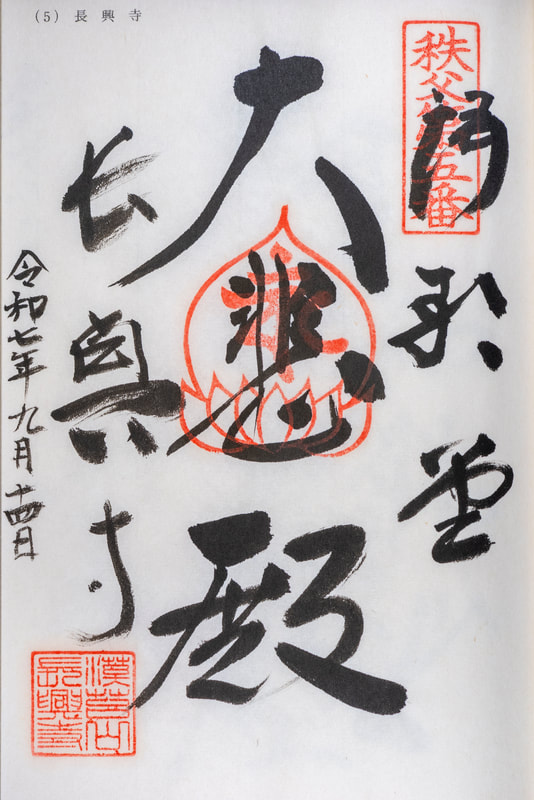 (5) 長興寺
秩父第五番
語歌堂
大悲殿
長興寺
令和七年九月十四日
長興寺